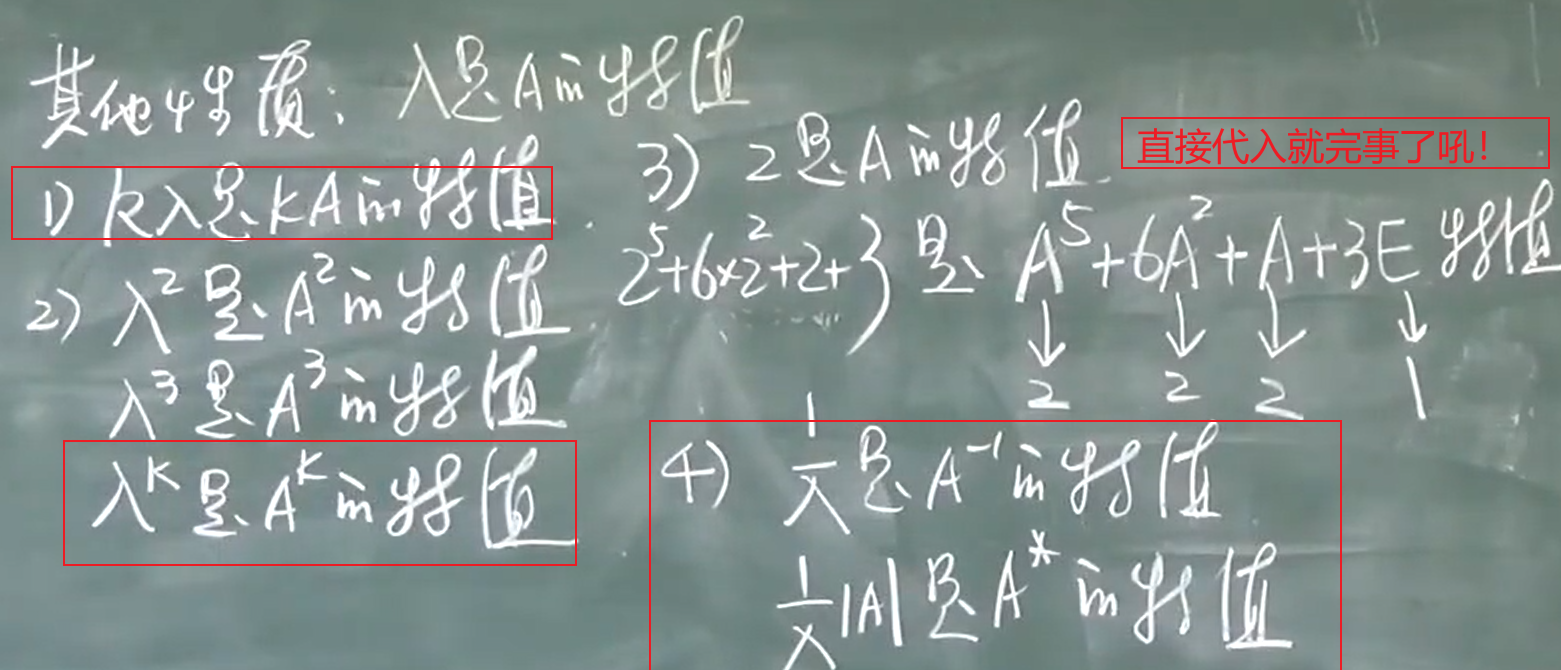 其他性质：λ是A的特值
1) kλ是kA的特值.
2) λ²是A²的特值.
λ³是A³的特值
λᵏ是Aᵏ的特值
3) 2是A的特值.
直接代入就完事了吼！
2⁵+6×2²+2+3是 A⁵+6A²+A+3E 特值
↓ ↓ ↓ ↓
2 2 2 1
4) 1/λ是A⁻¹的特值
1/λ|A|是A*的特值